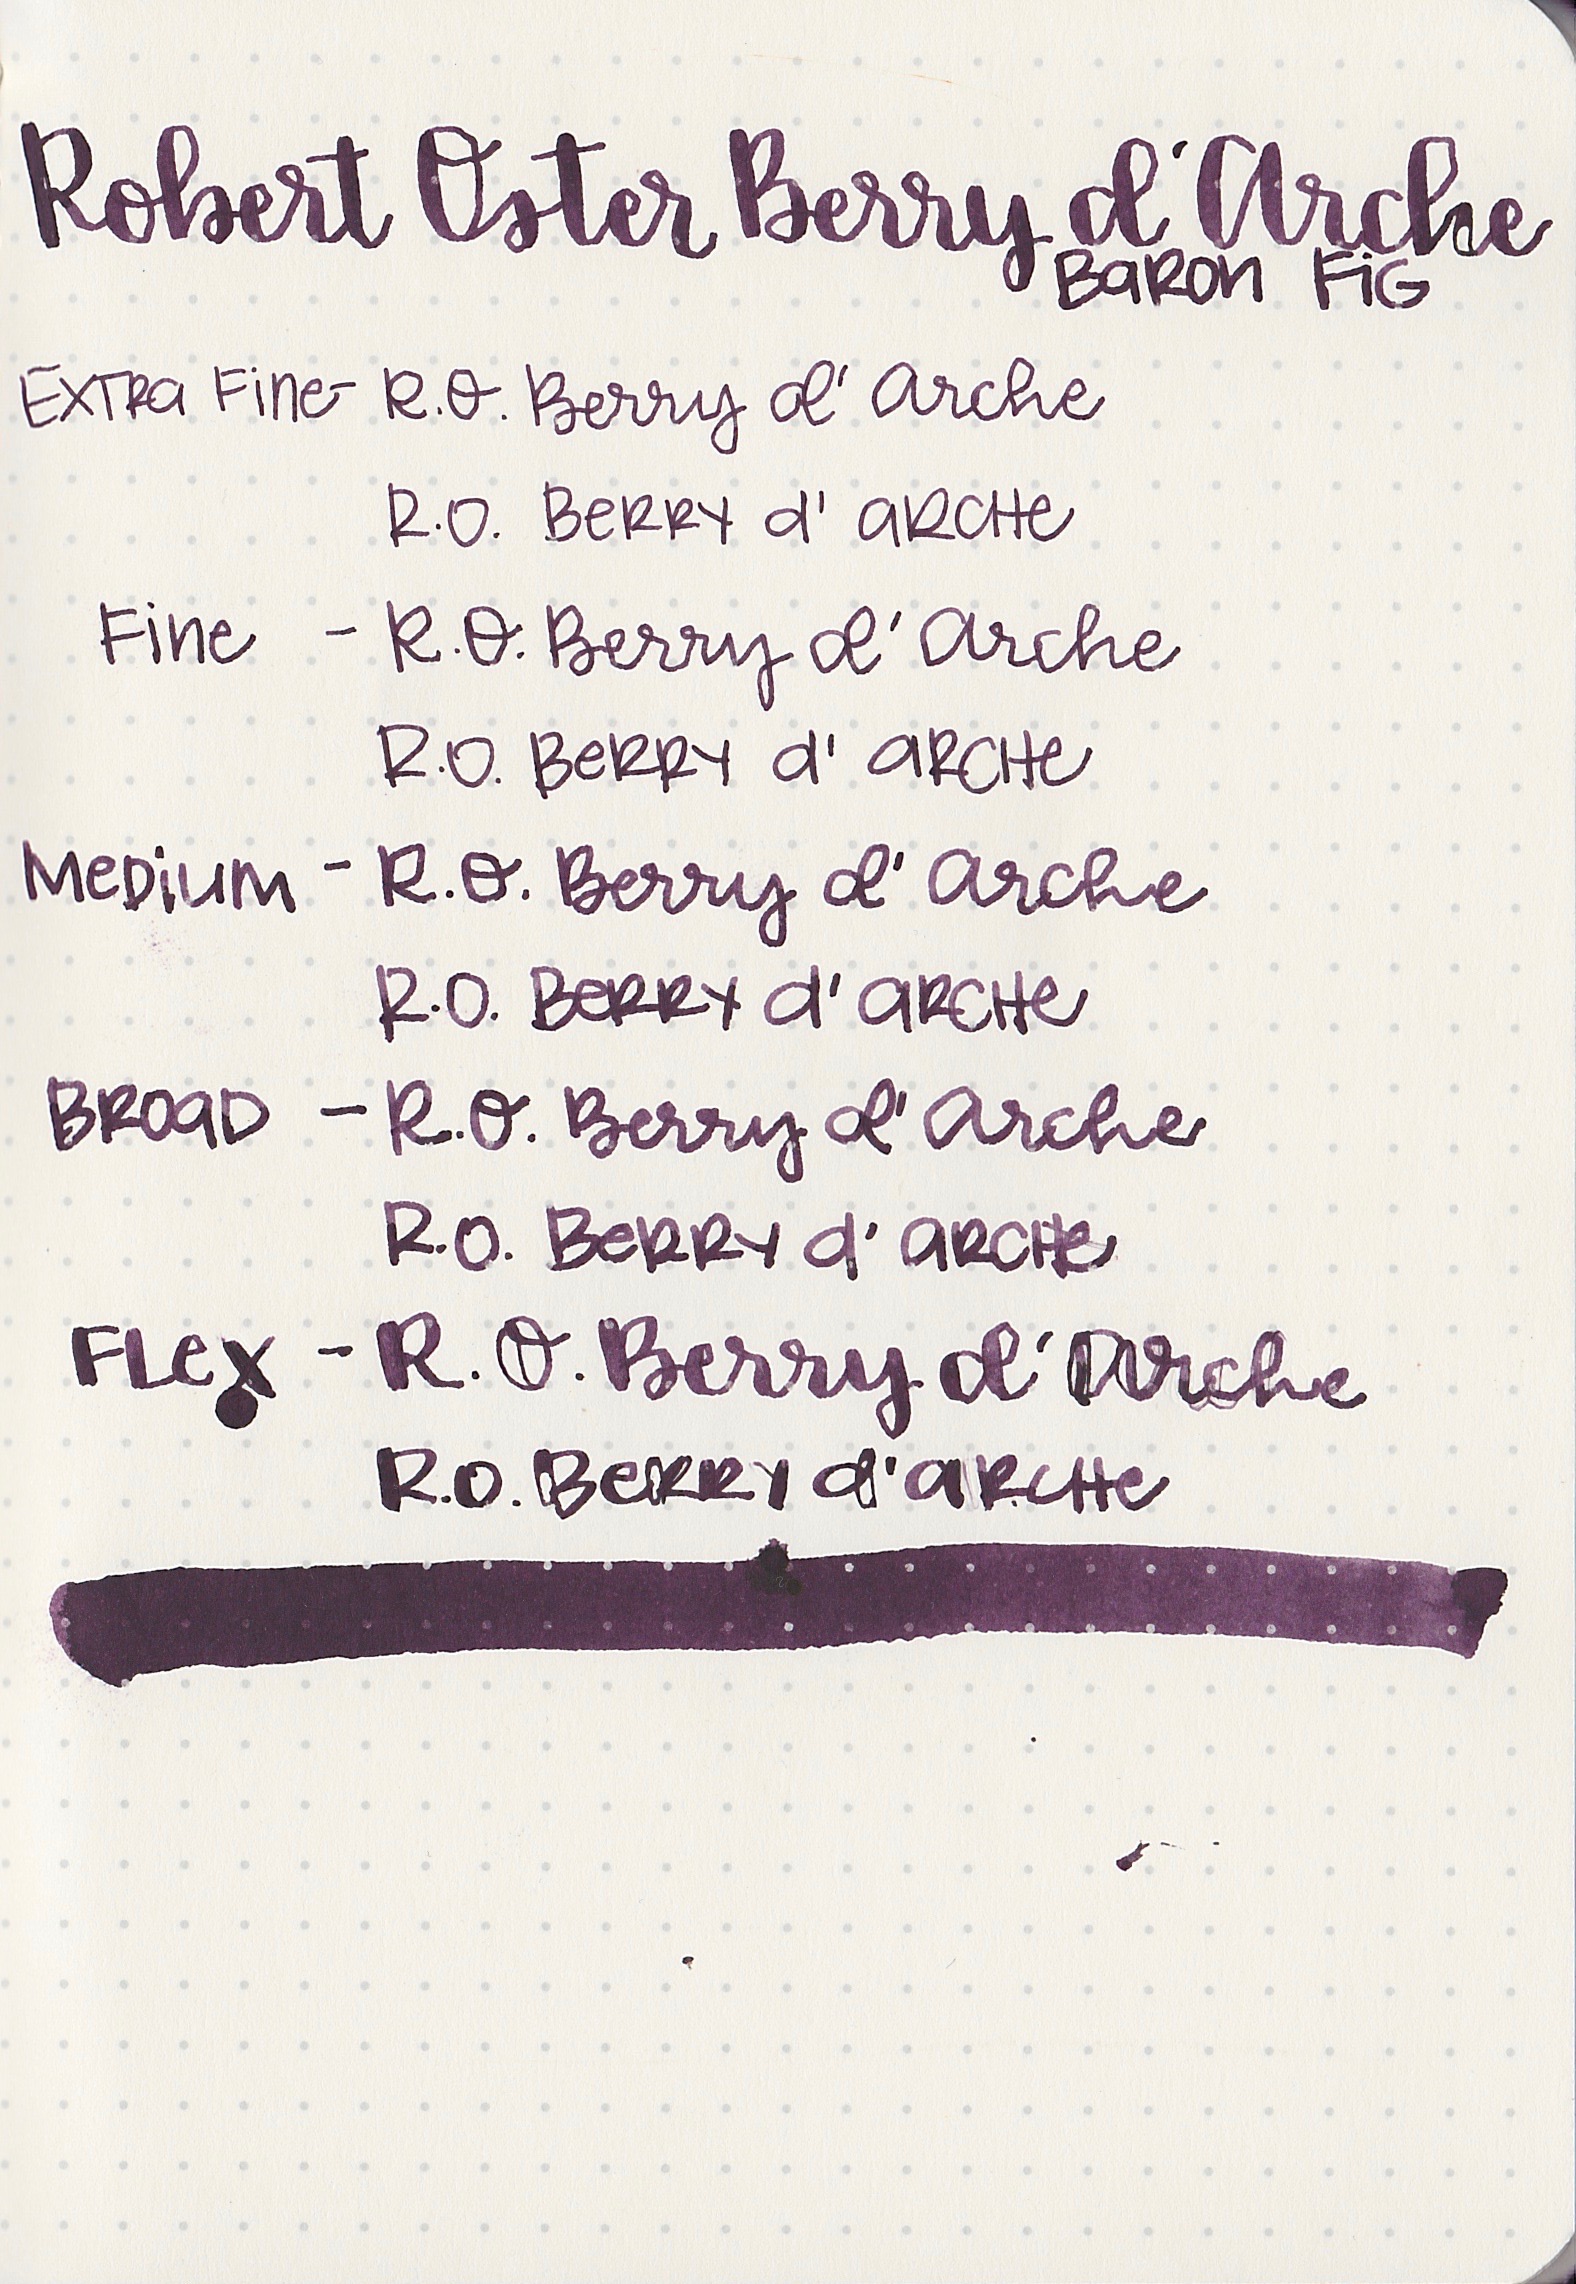 Robert Oster Berry d'Arche
Baron Fig
Extra Fine - R.O. Berry d' Arche
R.O. Berry d' Arche
Fine - R.O. Berry d' Arche
R.O. Berry d' Arche
Medium - R.O. Berry d' Arche
R.O. Berry d' Arche
Broad - R.O. Berry d' Arche
R.O. Berry d' Arche
Flex - R.O. Berry d' Arche
R.O. Berry d' Arche